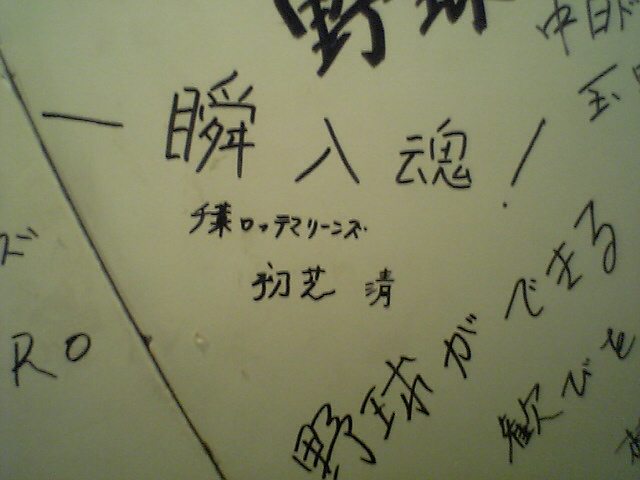 野球
中日ド
一瞬入魂!
千葉ロッテマリーンズ
初芝 清
ズ
RO
野球ができる
歓びを